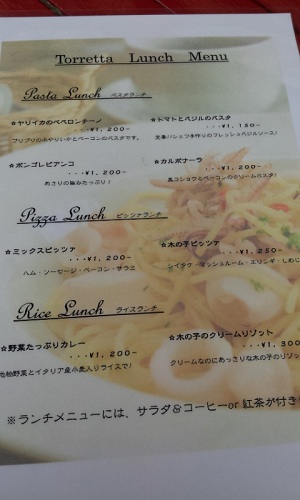 Torretta Lunch Menu
Pasta Lunch パスタランチ
☆ヤリイカのペペロンチーノ
・・・¥1,200~
プリプリのおやりいかとベーコンのパスタです。
☆トマトとバジルのパスタ
・・・¥1,150~
文楽パシェフ手作りのフレッシュバジルソース!
☆ボンゴレビアンコ
・・・¥1,200~
あさりの旨みたっぷり!
☆カルボナーラ
・・・¥1,200~
黒コショウとベーコンのクリームパスタ!
Pizza Lunch ピッツァランチ
☆ミックスピッツァ
・・・¥1,200~
ハム・ソーセージ・ベーコン・サラミ
☆木の子ピッツァ
・・・¥1,250~
シイタケ・マッシュルーム・エリンギ・しめじ
Rice Lunch ライスランチ
☆野菜たっぷりカレー
・・・¥1,200~
地粉野菜とイタリア産小麦入りライスで!
☆木の子のクリームリゾット
・・・¥1,300
クリームなのにあっさりな木の子のリゾッ
※ランチメニューには、サラダ&コーヒーor紅茶が付き